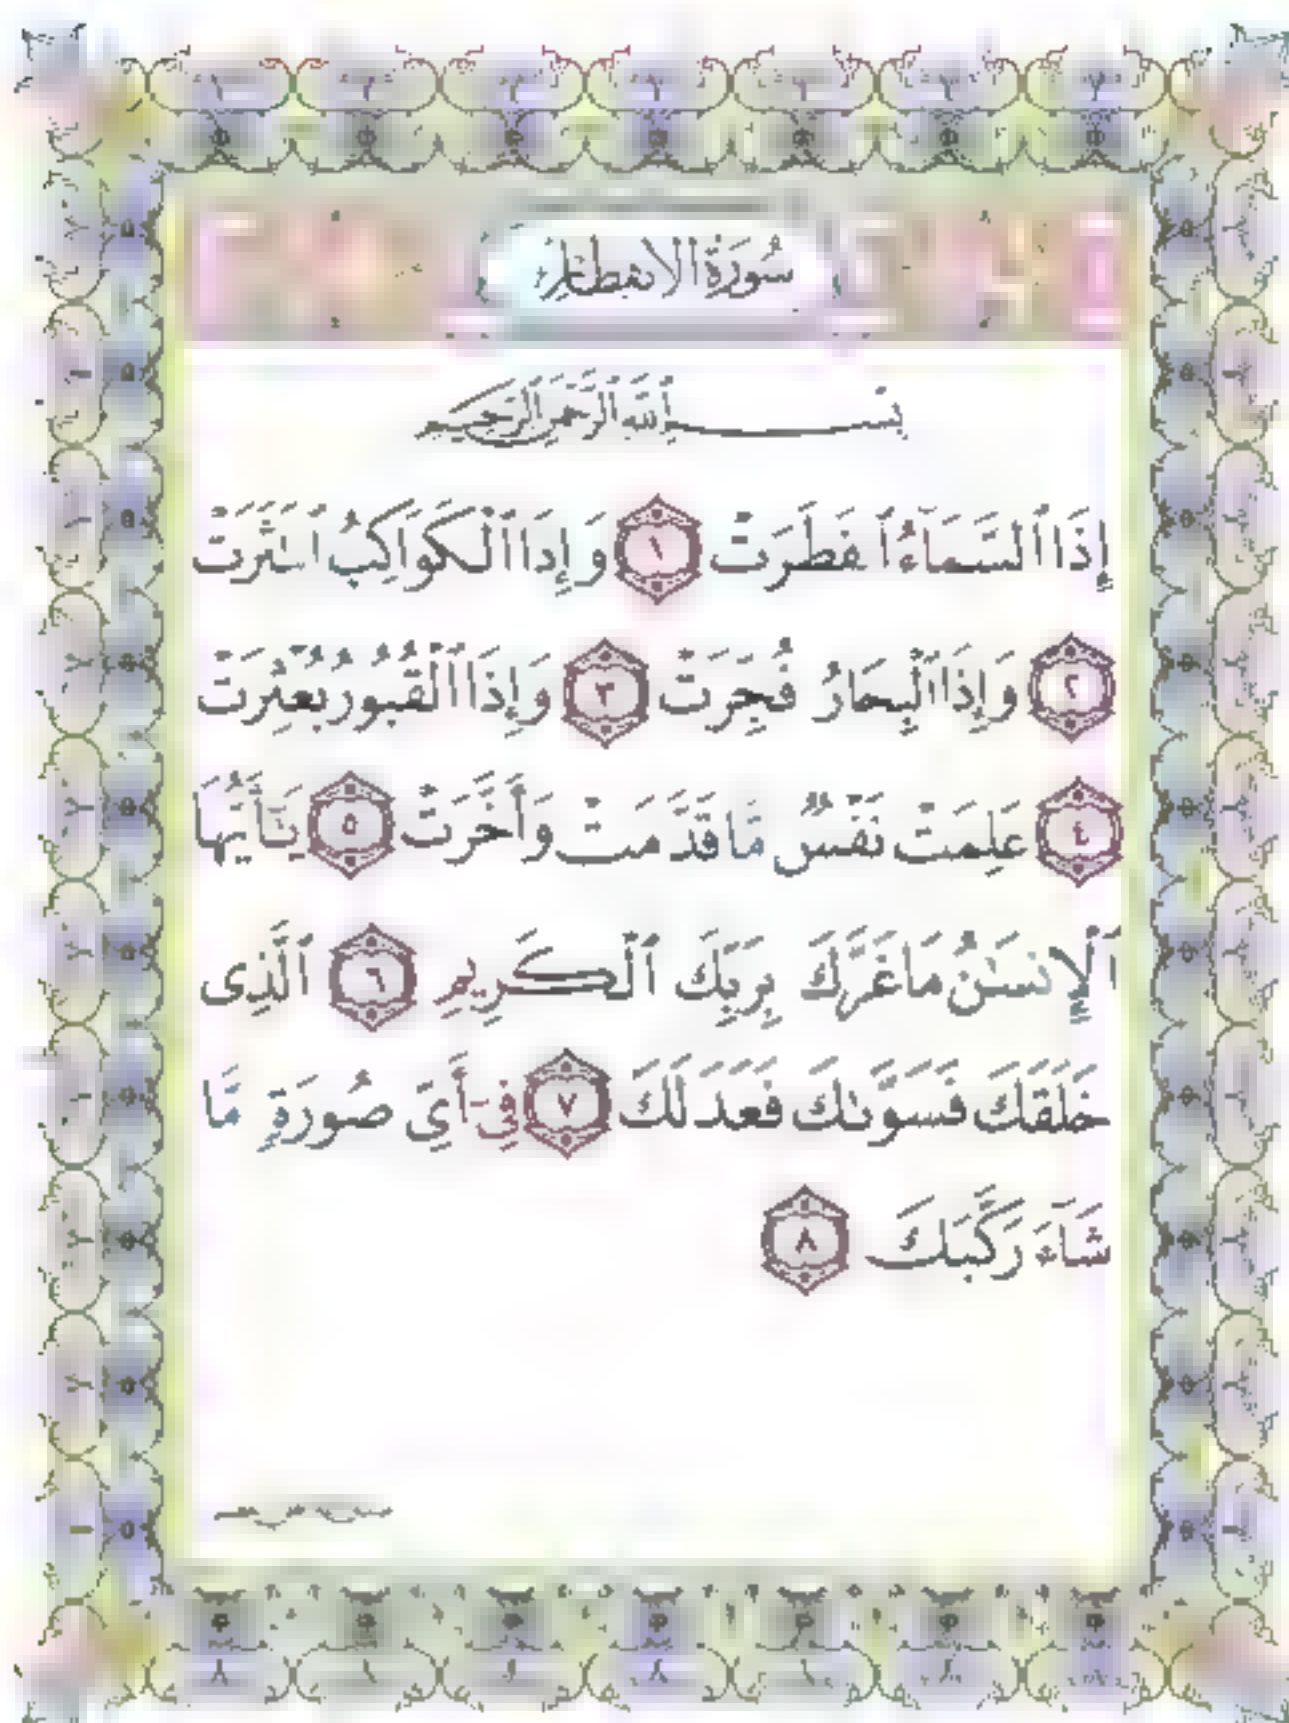 سُورَةُ الانفِطَارِ
بِسْمِ ٱللَّهِ ٱلرَّحْمَٰنِ ٱلرَّحِيمِ
إِذَا ٱلسَّمَآءُ ٱنفَطَرَتْ ١ وَإِذَا ٱلْكَوَاكِبُ ٱنتَثَرَتْ
٢ وَإِذَا ٱلْبِحَارُ فُجِّرَتْ ٣ وَإِذَا ٱلْقُبُورُ بُعْثِرَتْ
٤ عَلِمَتْ نَفْسٌ مَّا قَدَّمَتْ وَأَخَّرَتْ ٥ يَٰٓأَيُّهَا
ٱلْإِنسَٰنُ مَا غَرَّكَ بِرَبِّكَ ٱلْكَرِيمِ ٦ ٱلَّذِى
خَلَقَكَ فَسَوَّىٰكَ فَعَدَلَكَ ٧ فِىٓ أَىِّ صُورَةٍ مَّا
شَآءَ رَكَّبَكَ ٨